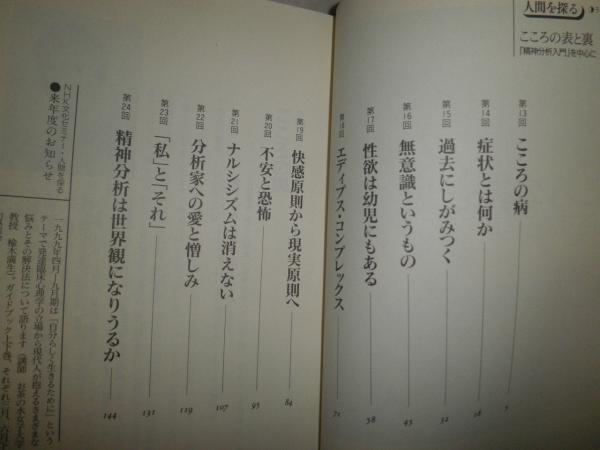 人間を探る
こころの表と裏
「精神分析入門」を中心に
第13回 こころの病 5
第14回 症状とは何か 18
第15回 過去にしがみつく 32
第16回 無意識というもの 45
第17回 性欲は幼児にもある 58
第18回 エディプス・コンプレックス 71
第19回 快感原則から現実原則へ 84
第20回 不安と恐怖 95
第21回 ナルシシズムは消えない 107
第22回 分析家への愛と憎しみ 119
第23回 「私」と「それ」 131
第24回 精神分析は世界観になりうるか 144
NHK文化セミナー・人間を探る
●来年度のお知らせ
一九九九年四月〜九月期は「自分らしく生きるために」という
テーマで発達臨床心理学の立場から現代人が抱えるさまざまな
悩みとその解決法について語ります（講師 お茶の水女子大学
教授